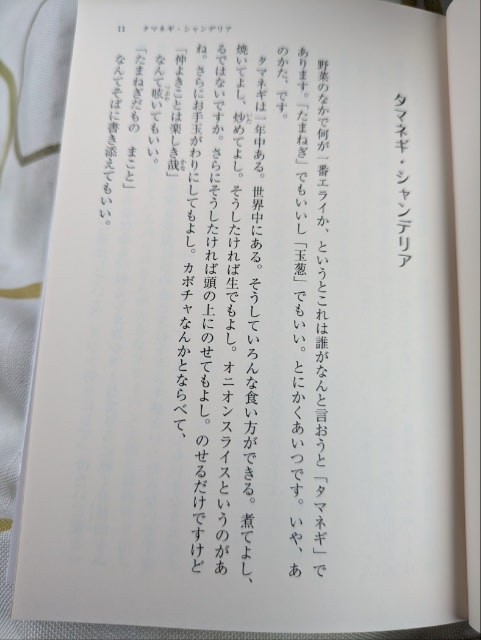 11　タマネギ・シャンデリア
タマネギ・シャンデリア
　野菜のなかで何が一番エライか、というとこれは誰がなんと言おうと「タマネギ」で
あります。「たまねぎ」でもいいし「玉葱」でもいい。とにかくあいつです。いや、あ
のかた、です。
　タマネギは一年中ある。世界中にある。そうしていろんな食い方ができる。煮てよし、
焼いてよし、炒めてよし。そうしたければ生でもよし。オニオンスライスというのがあ
るではないですか。さらにそうしたければ頭の上にのせてもよし。のせるだけですけど
ね。さらにお手玉がわりにしてもよし。カボチャなんかとならべて、
「仲よきことは楽しき哉」
　なんて呟いてもいい。
「たまねぎだもの　まこと」
　なんてそばに書き添えてもいい。